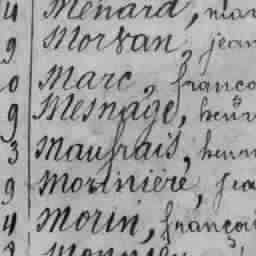 4 Ménard, mar
9 Morvan, jean
0 Marc, franço
9 Mesnage, heur
3 Maufrais, henr
9 Morinière, fra
4 Morin, françoi